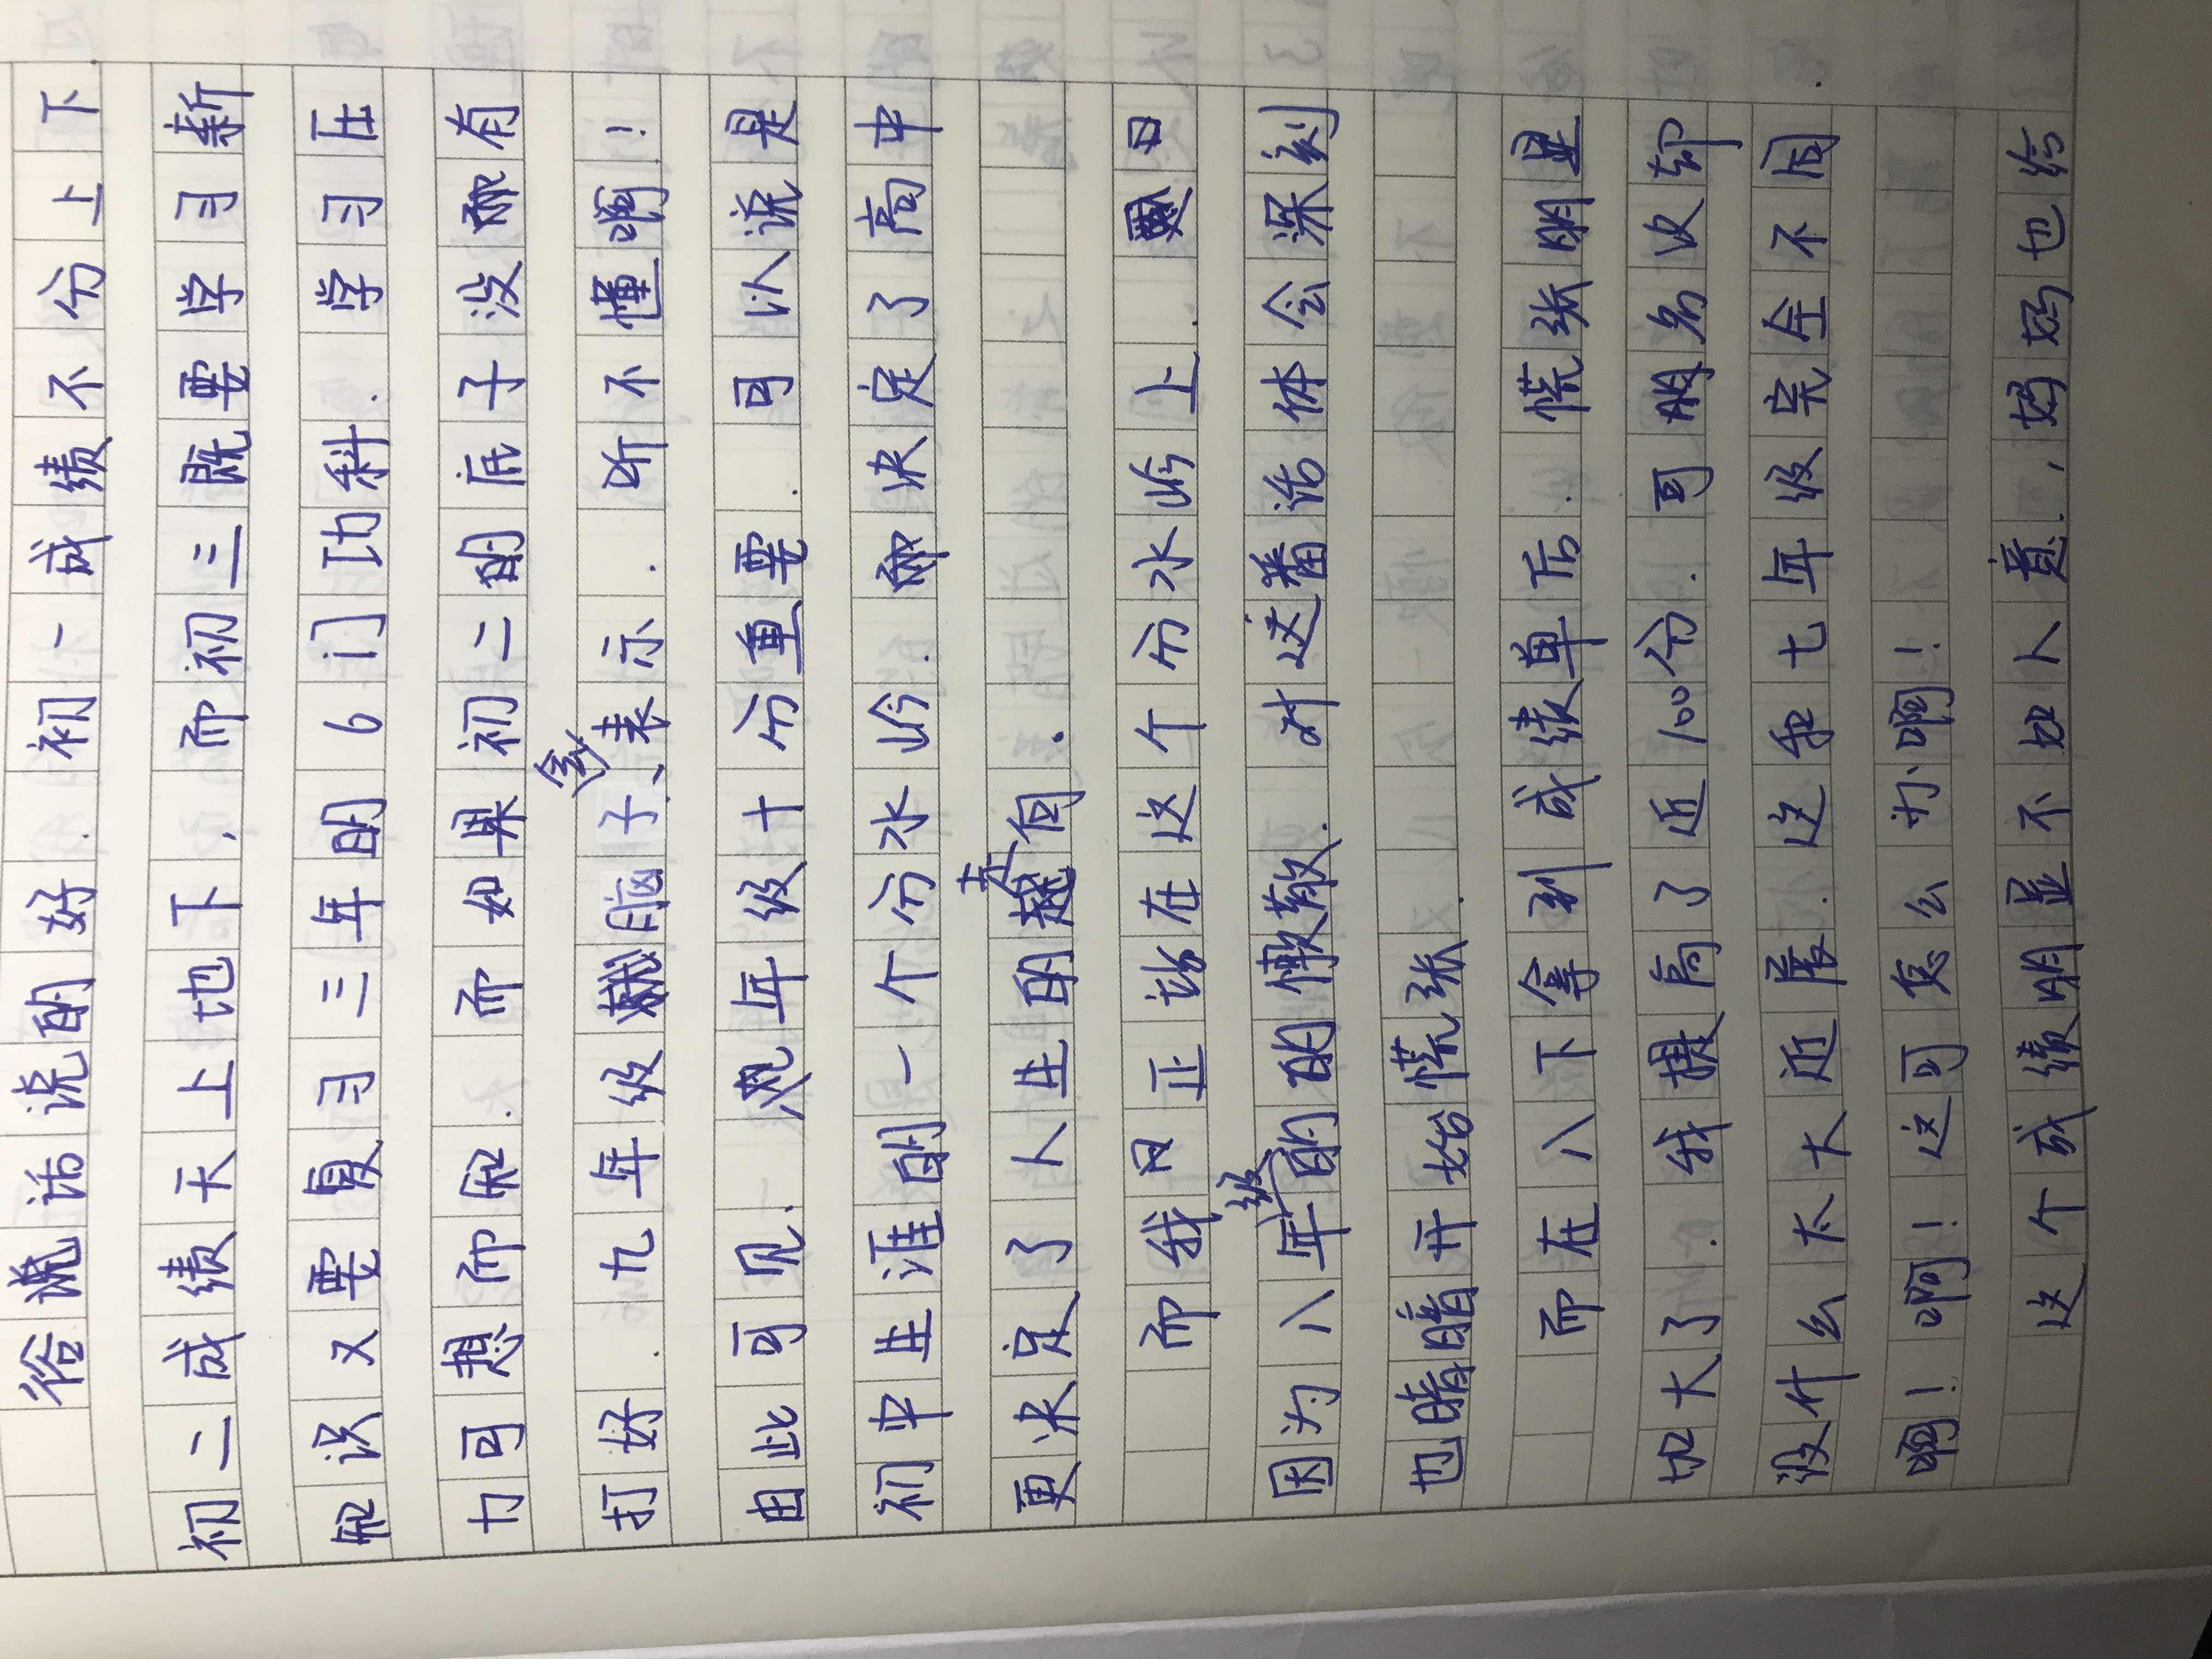 俗话说的好.初一成绩不分上下
初二成绩天上地下,而初三既要学习新
知识又要复习三年的6门功科.学习压
力可想而知.而如果初二的底子没有
打好.九年级脑子会表示.听不懂啊!
由此可见.八年级十分重要.可以说是
初中生涯的一个分水岭.决定了高中
更决定了人生的走向.
而我正站在这个分水岭上.
因为八年级的懒散.对这番话体会深刻
也暗暗开始慌张.
而在八下拿到成绩单后.慌张明显
加大了.我提高了近100分.可名次却
没什么太大近展.这和七年级完全不同
啊!啊!这可怎么办啊!
这个成绩明显不如人意.,妈妈也给